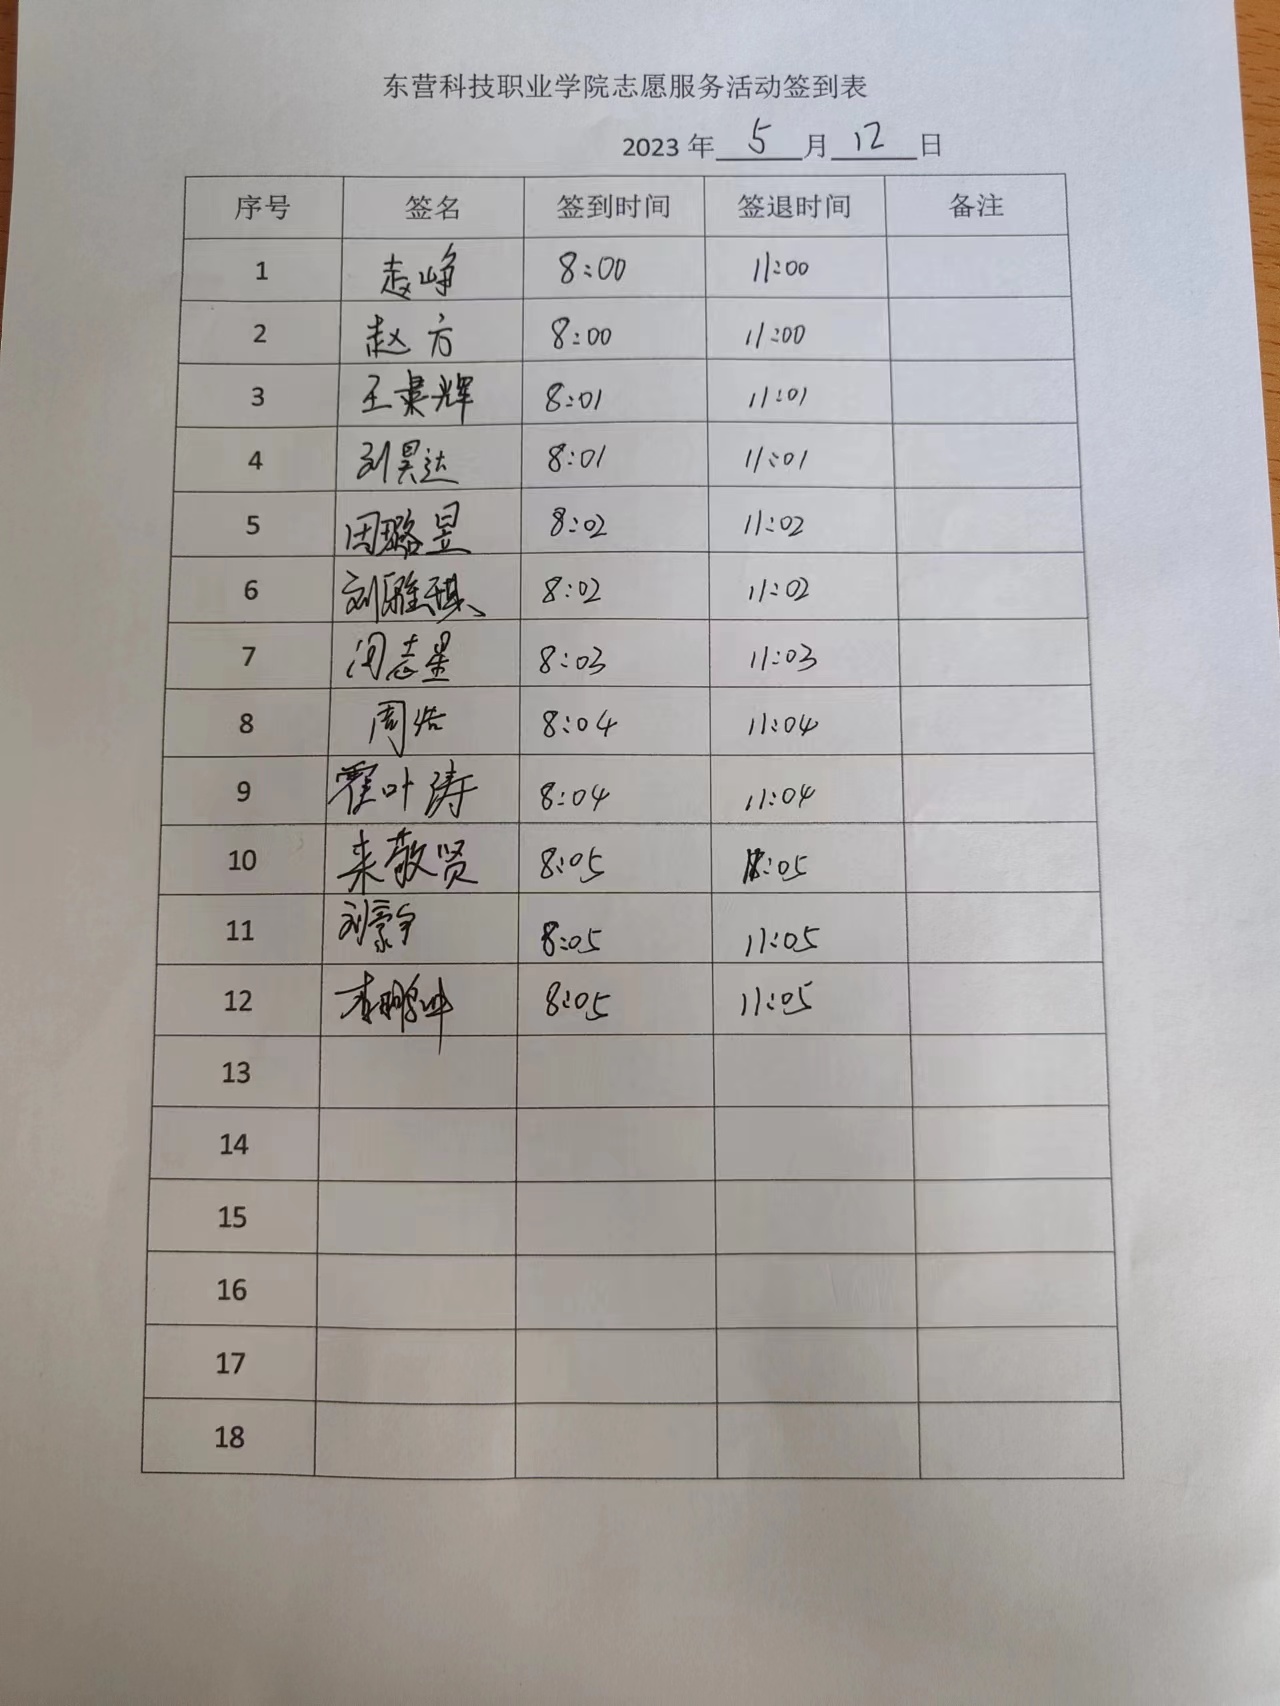 东营科技职业学院志愿服务活动签到表
2023 年 5 月 12 日
序号 签名 签到时间 签退时间 备注
1 赵峥 8:00 11:00
2 赵方 8:00 11:00
3 王肃辉 8:01 11:01
4 刘昊达 8:01 11:01
5 田璐昱 8:02 11:02
6 刘雅琪 8:02 11:02
7 闫志星 8:03 11:03
8 周浩 8:04 11:04
9 霍叶涛 8:04 11:04
10 来敬贤 8:05 :05
11 刘豪宇 8:05 11:05
12 李鹏坤 8:05 11:05
13
14
15
16
17
18